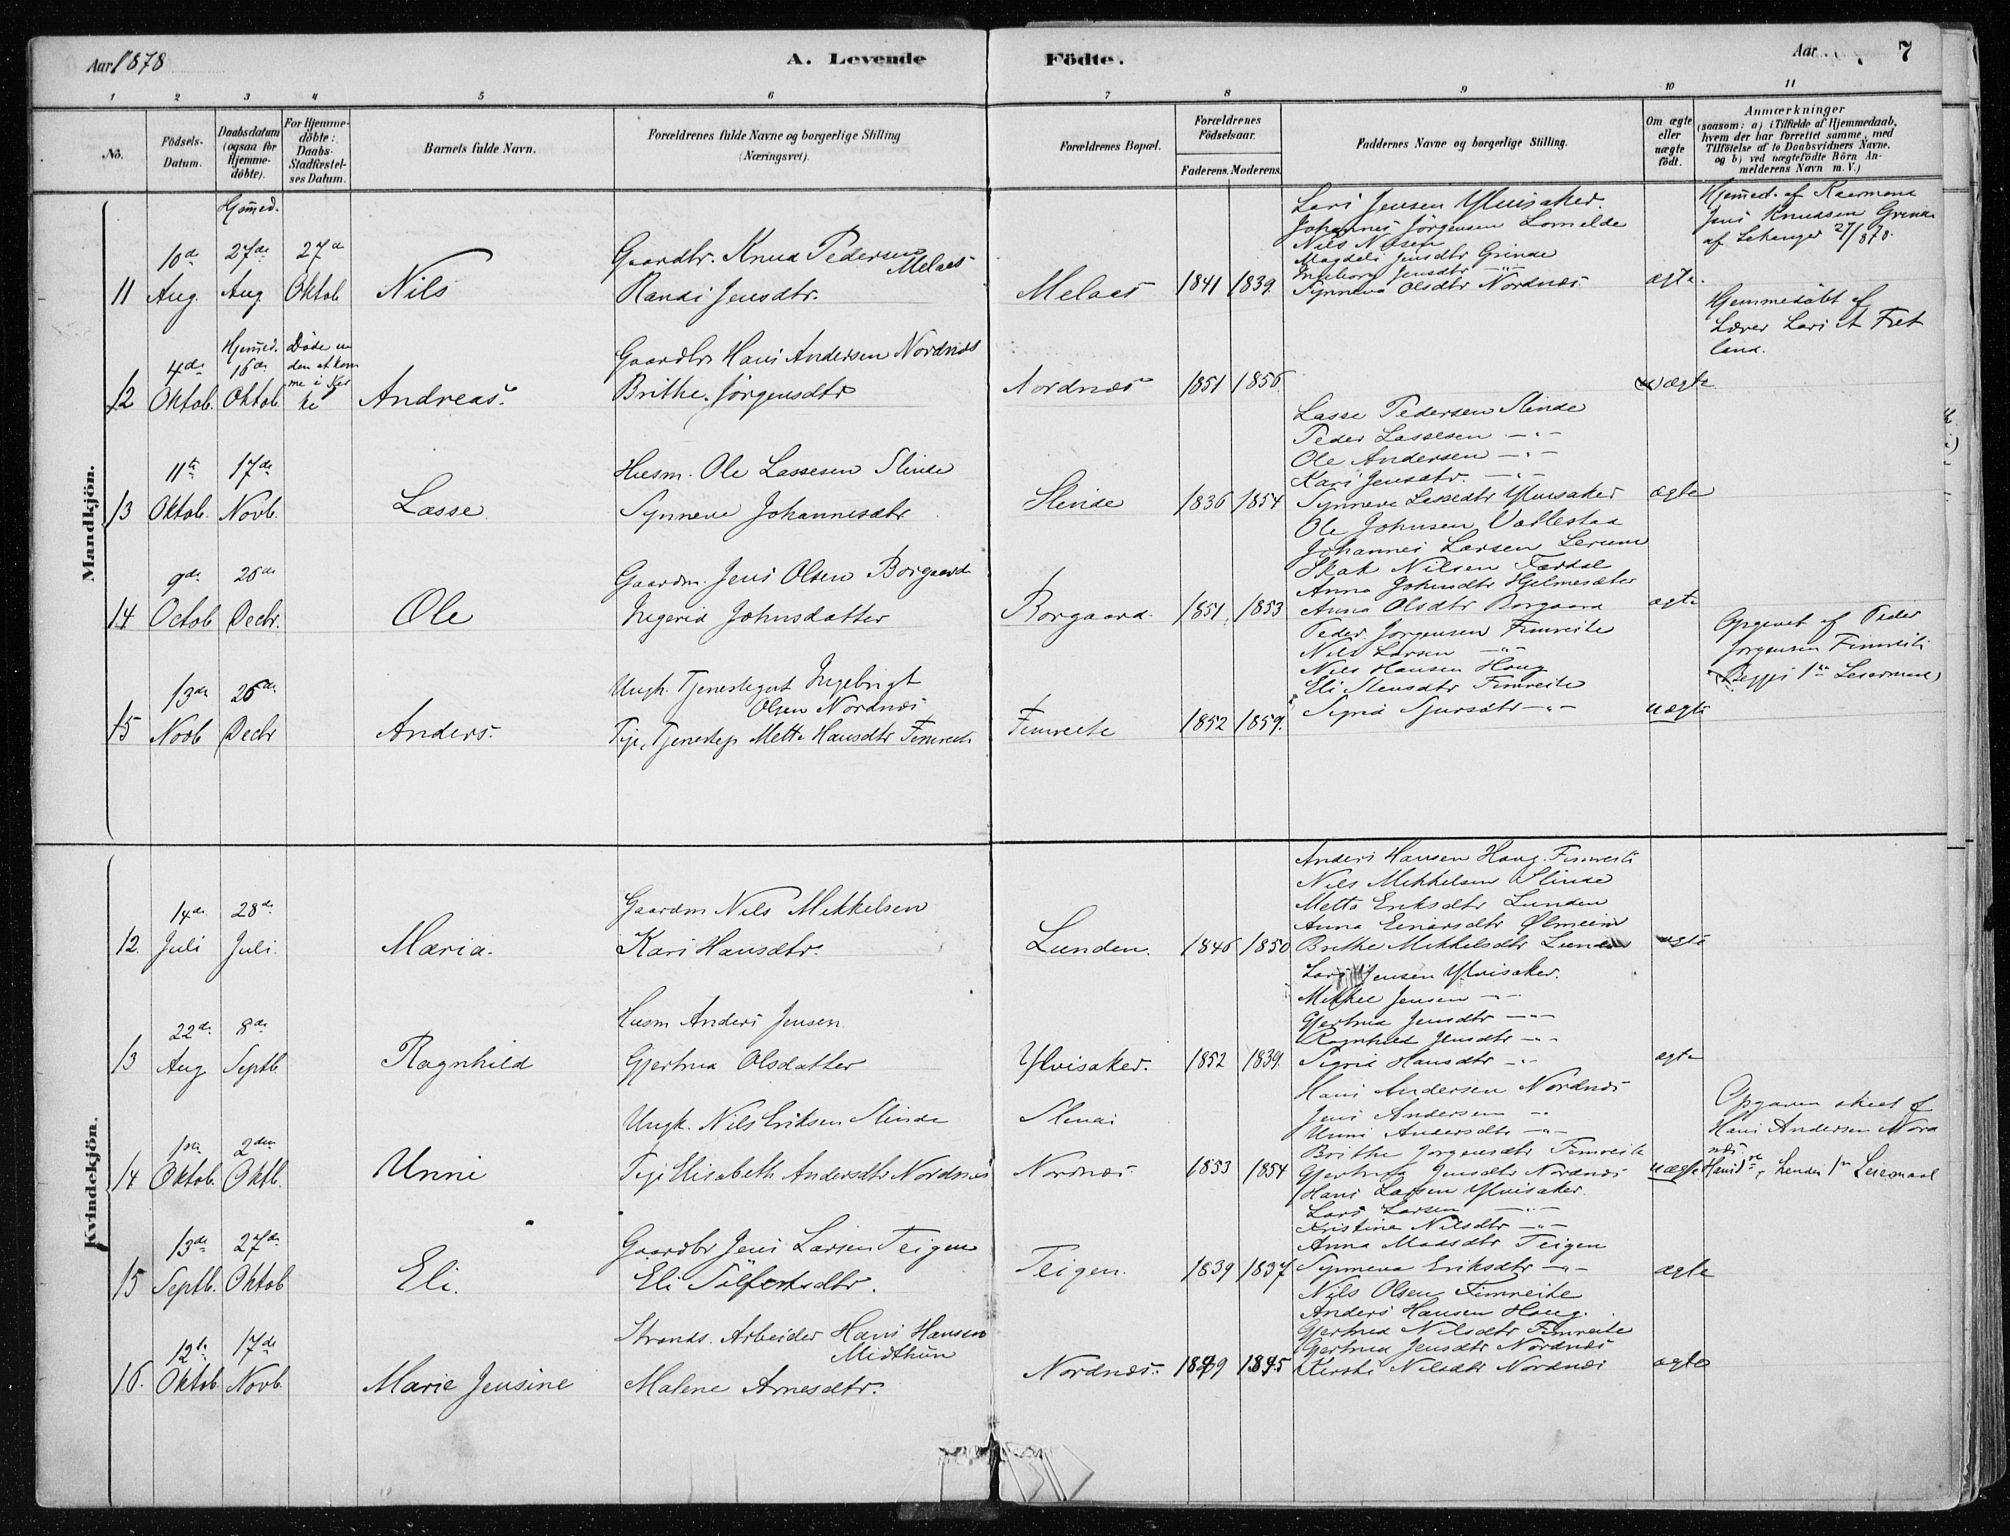 Aar 1878
A. Levende
Födte.
Aar
7
1 2 3 4 5 6 7 8 9 10 11
No.
Födsels-Datum.
Daabsdatum (ogsaa for Hjemmedöbte).
For Hjemmedöbte: Daabs-Stadfæstelses Datum.
Barnets fulde Navn.
Forældrenes fulde Navne og borgerlige Stilling (Næringsvei).
Forældrenes Bopæl.
Forældrenes Födselsaar.
Faderens. Moderens.
Faddernes Navne og borgerlige Stilling.
Om ægte eller uægte födt.
Anmærkninger
(saasom: a) i Tilfælde af Hjemmedaab, hvem der har forrettet samme, med Tilföielse af to Daabsvidners Navne, og b) ved uægtefödte Börn Anmelderens Navn m. V.)
Mandkjön.
11
10de Aug.
Hjemmed. 27de Aug
27de Oktob.
Nils
Gaardbr. Knud Pedersen Melaas
Randi Jensdtr.
Melaas
1841 1839.
Lars Jensen Ylvisaker.
Johannes Jörgensen Lomelde
Nils Olsen
Magdeli Jensdtr Grinde
Ingeborg Jensdtr -"-
Synneva Olsdtr Nordnæs
ægte.
Hjemmed. af Kaarmand
Jens Knudsen Grinde
af Lekanger 27/8 78.
12
4de Oktob.
Hjemmed. 16de Oktob.
Döde uden at komme i Kirke
Andreas.
Gaardbr Hans Andersen Nordnæs
Brithe Jörgensdtr
Nordnæs
1851 1856.
(u)ægte
Hjemmedöbt af
Lærer Lars A Fretland.
13
11te Oktob.
17de Novb.
Lasse.
Husm. Ole Lassesen Slinde
Synneve Johannesdtr
Slinde
1836 1854
Lasse Pedersen Slinde
Peder Lassesen -"-
Ole Andersen -"-
Kari Jensdtr. -"-
Synneva Lassedtr Ylvisaker
ægte
14
9de Octob
26de Decbr.
Ole
Gaardm. Jens Olsen Borgaard
Ingerid Johnsdatter
Borgaard.
1851. 1853
Ole Johnsen Vallestad
Johannes Larsen Lerum
Skak Nilsen Fardal
Anna Johnsdtr Hjelmesæter
Anna Olsdtr Borgaard
ægte
15
13de Novb
26de Decbr
Anders.
Ungk. Tjenestegut Ingebrigt Olsen Nordnæs
Pige, Tjenestep Metta Hansdtr Fimreite
Fimreite
1852 1859.
Peder Jorgensen Fimreite
Nils Larsen -"-
Nils Hansen Houg
Eli Stensdtr Fimreite
Sigrid Sjursdtr -"-
uægte
Opgivet af Peder
Jorgensen Fimreiti
(Begges 1ste Leiermaal)
Kvindekjön.
12.
14de Juli
28de Juli.
Maria.
Gaardm Nils Mikkelsen
Kari Hansdtr.
Lunden.
1846 1850
Anders Hansen Houg. Fimreiti
Nils Mikkelsen Slinde
Metta Eriksdtr Lunden
Anna Einarsdtr Ølmeim
Brithe Mikkelsdtr Lunden
ægte
13
22de Aug
8de Septb.
Ragnhild
Husm Anders Jensen
Gjertrud Olsdatter
Ylvisaker.
1852 1839.
Lars Jensen Ylvisaker.
Mikkel Jensen -"-
Gjertrud Jensdtr -"-
Ragnhild Jensdtr -"-
Sigrid Hansdtr -"-
ægte
14
1ste Oktob.
2den Oktb.
Unni
Ungk. Nils Eriksen Slinde
Pige Elisabeth Andersdtr Nordnæs
Nordnæs
1853 1854
Hans Andersen Nordnæs
Jens Andersen -"-
Unni Andersdtr -"-
Brithe Jorgensdtr Fimreite
Gjertrud Jensdtr Nordnæs
uægte
Opgaven skeet af
Hans Andersen Nordnæs
Hans 1ste, hendes 1ste Leiermaal
15
13de Septb.
27de Oktob
Eli.
Gaardbr Jens Larsen Teigen
Eli Sjursdtr.
Teigen.
1839 1837
Hans Larsen Ylvisaker.
Lars Larsen -"-
Kristine Nilsdtr -"-
Anna Madsdtr Teigen
Synneva Eriksdtr -"-
ægte
16.
12te Oktob.
17de Novb.
Marie Jensine
Strands. Arbeider Hans Hansen Midthun
Malene Arnesdtr.
Nordnæs.
1849 1845
Nils Olsen Fimreite
Anders Hansen Houg.
Gjertrud Nilsdtr Fimreite
Gjertrud Jensdtr Nordnæs
Kirsti Nilsdtr Nordnæs
ægte